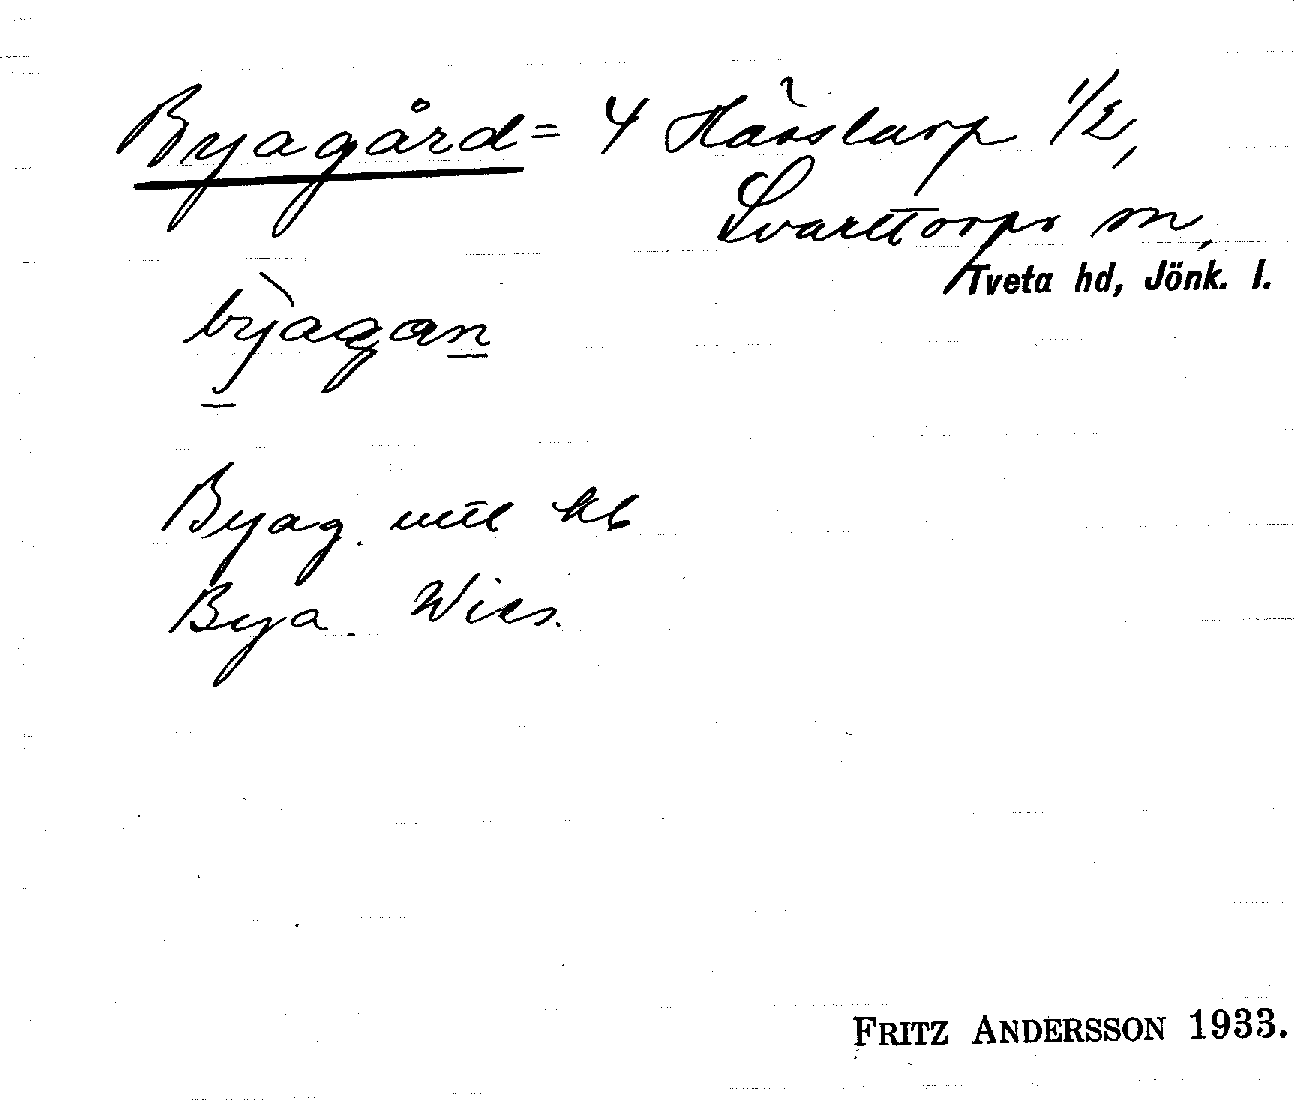 Byagård = 4 Härstorp 1/2,
Svarttorps sn,
Tveta hd, Jönk. l.
bỳagan
Byag. utt kb
Bya. Wies.
FRITZ ANDERSSON 1933.